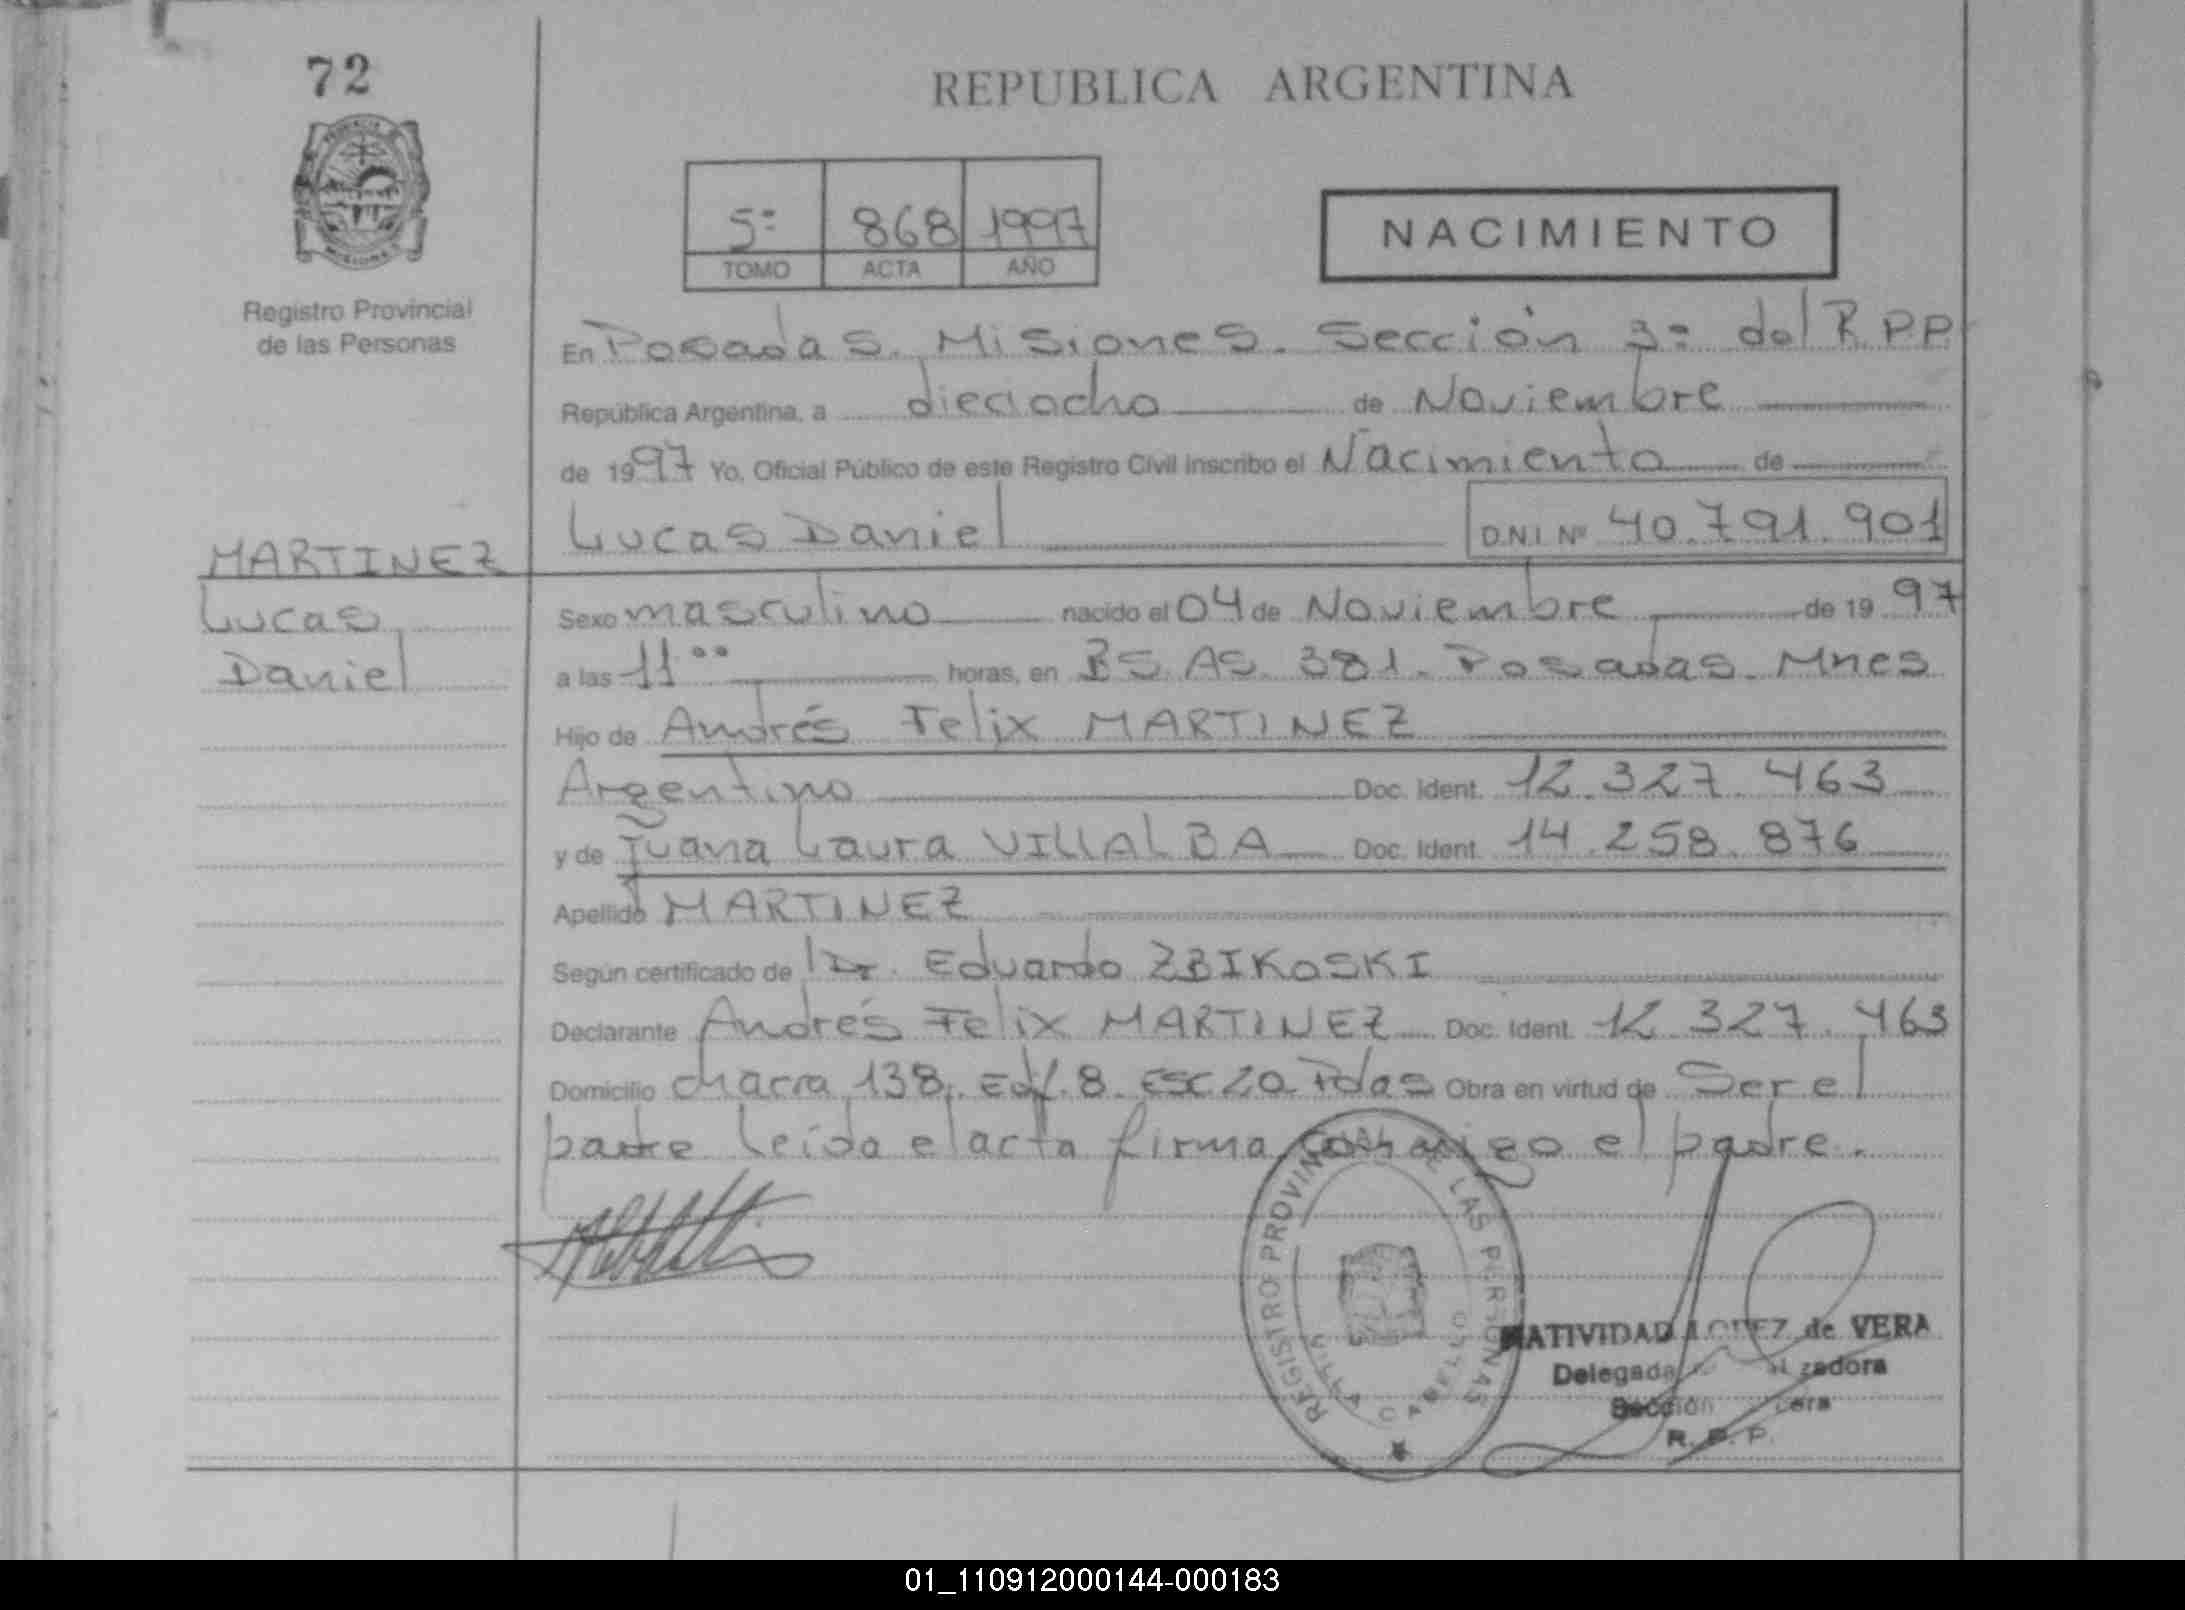 72
REPUBLICA ARGENTINA
5º 868 1997
TOMO ACTA AÑO
NACIMIENTO
Registro Provincial
de las Personas
En Posadas. Misiones. Sección 3º del R.P.P.
República Argentina, a dieciocho de Noviembre
de 1997 Yo, Oficial Público de este Registro Civil inscribo el Nacimiento de
Lucas Daniel D.N.I. Nº 40.791.901
MARTINEZ
Lucas
Daniel
Sexo masculino nacido el 04 de Noviembre de 1997
a las 11 00 horas, en BS. AS. 381. Posadas. Mnes
Hijo de Andrés Felix MARTINEZ
Argentino Doc. Ident. 12.327.463
y de Juana Laura VILLALBA Doc. Ident. 14.258.876
Apellido MARTINEZ
Según certificado de Dr. Eduardo ZBIKOSKI
Declarante Andrés Felix MARTINEZ Doc. Ident. 12.327.463
Domicilio chacra 138. Edf. 8. Esc 20. Pdas Obra en virtud de Ser el
padre leída el acta firma conmigo el padre.
REGISTRO PROVINCIAL DE LAS PERSONAS
NATIVIDAD LOPEZ de VERA
Delegada
Sección
R. P. P.
01_110912000144-000183